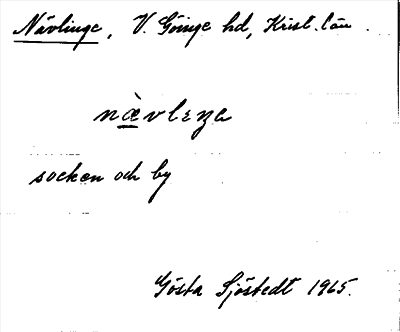 Nävlinge, V. Göinge hd, Krist. län.
nævleŋa
socken och by
Gösta Sjöstedt 1965.